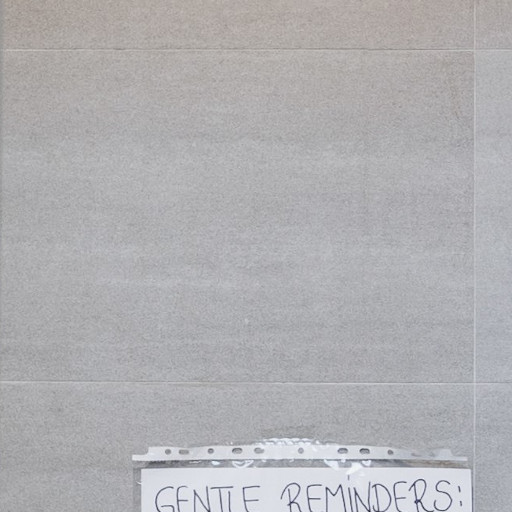 GENTLE REMINDERS: